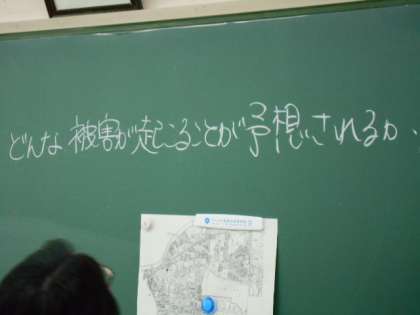 どんな被害が起こることが予想されるか